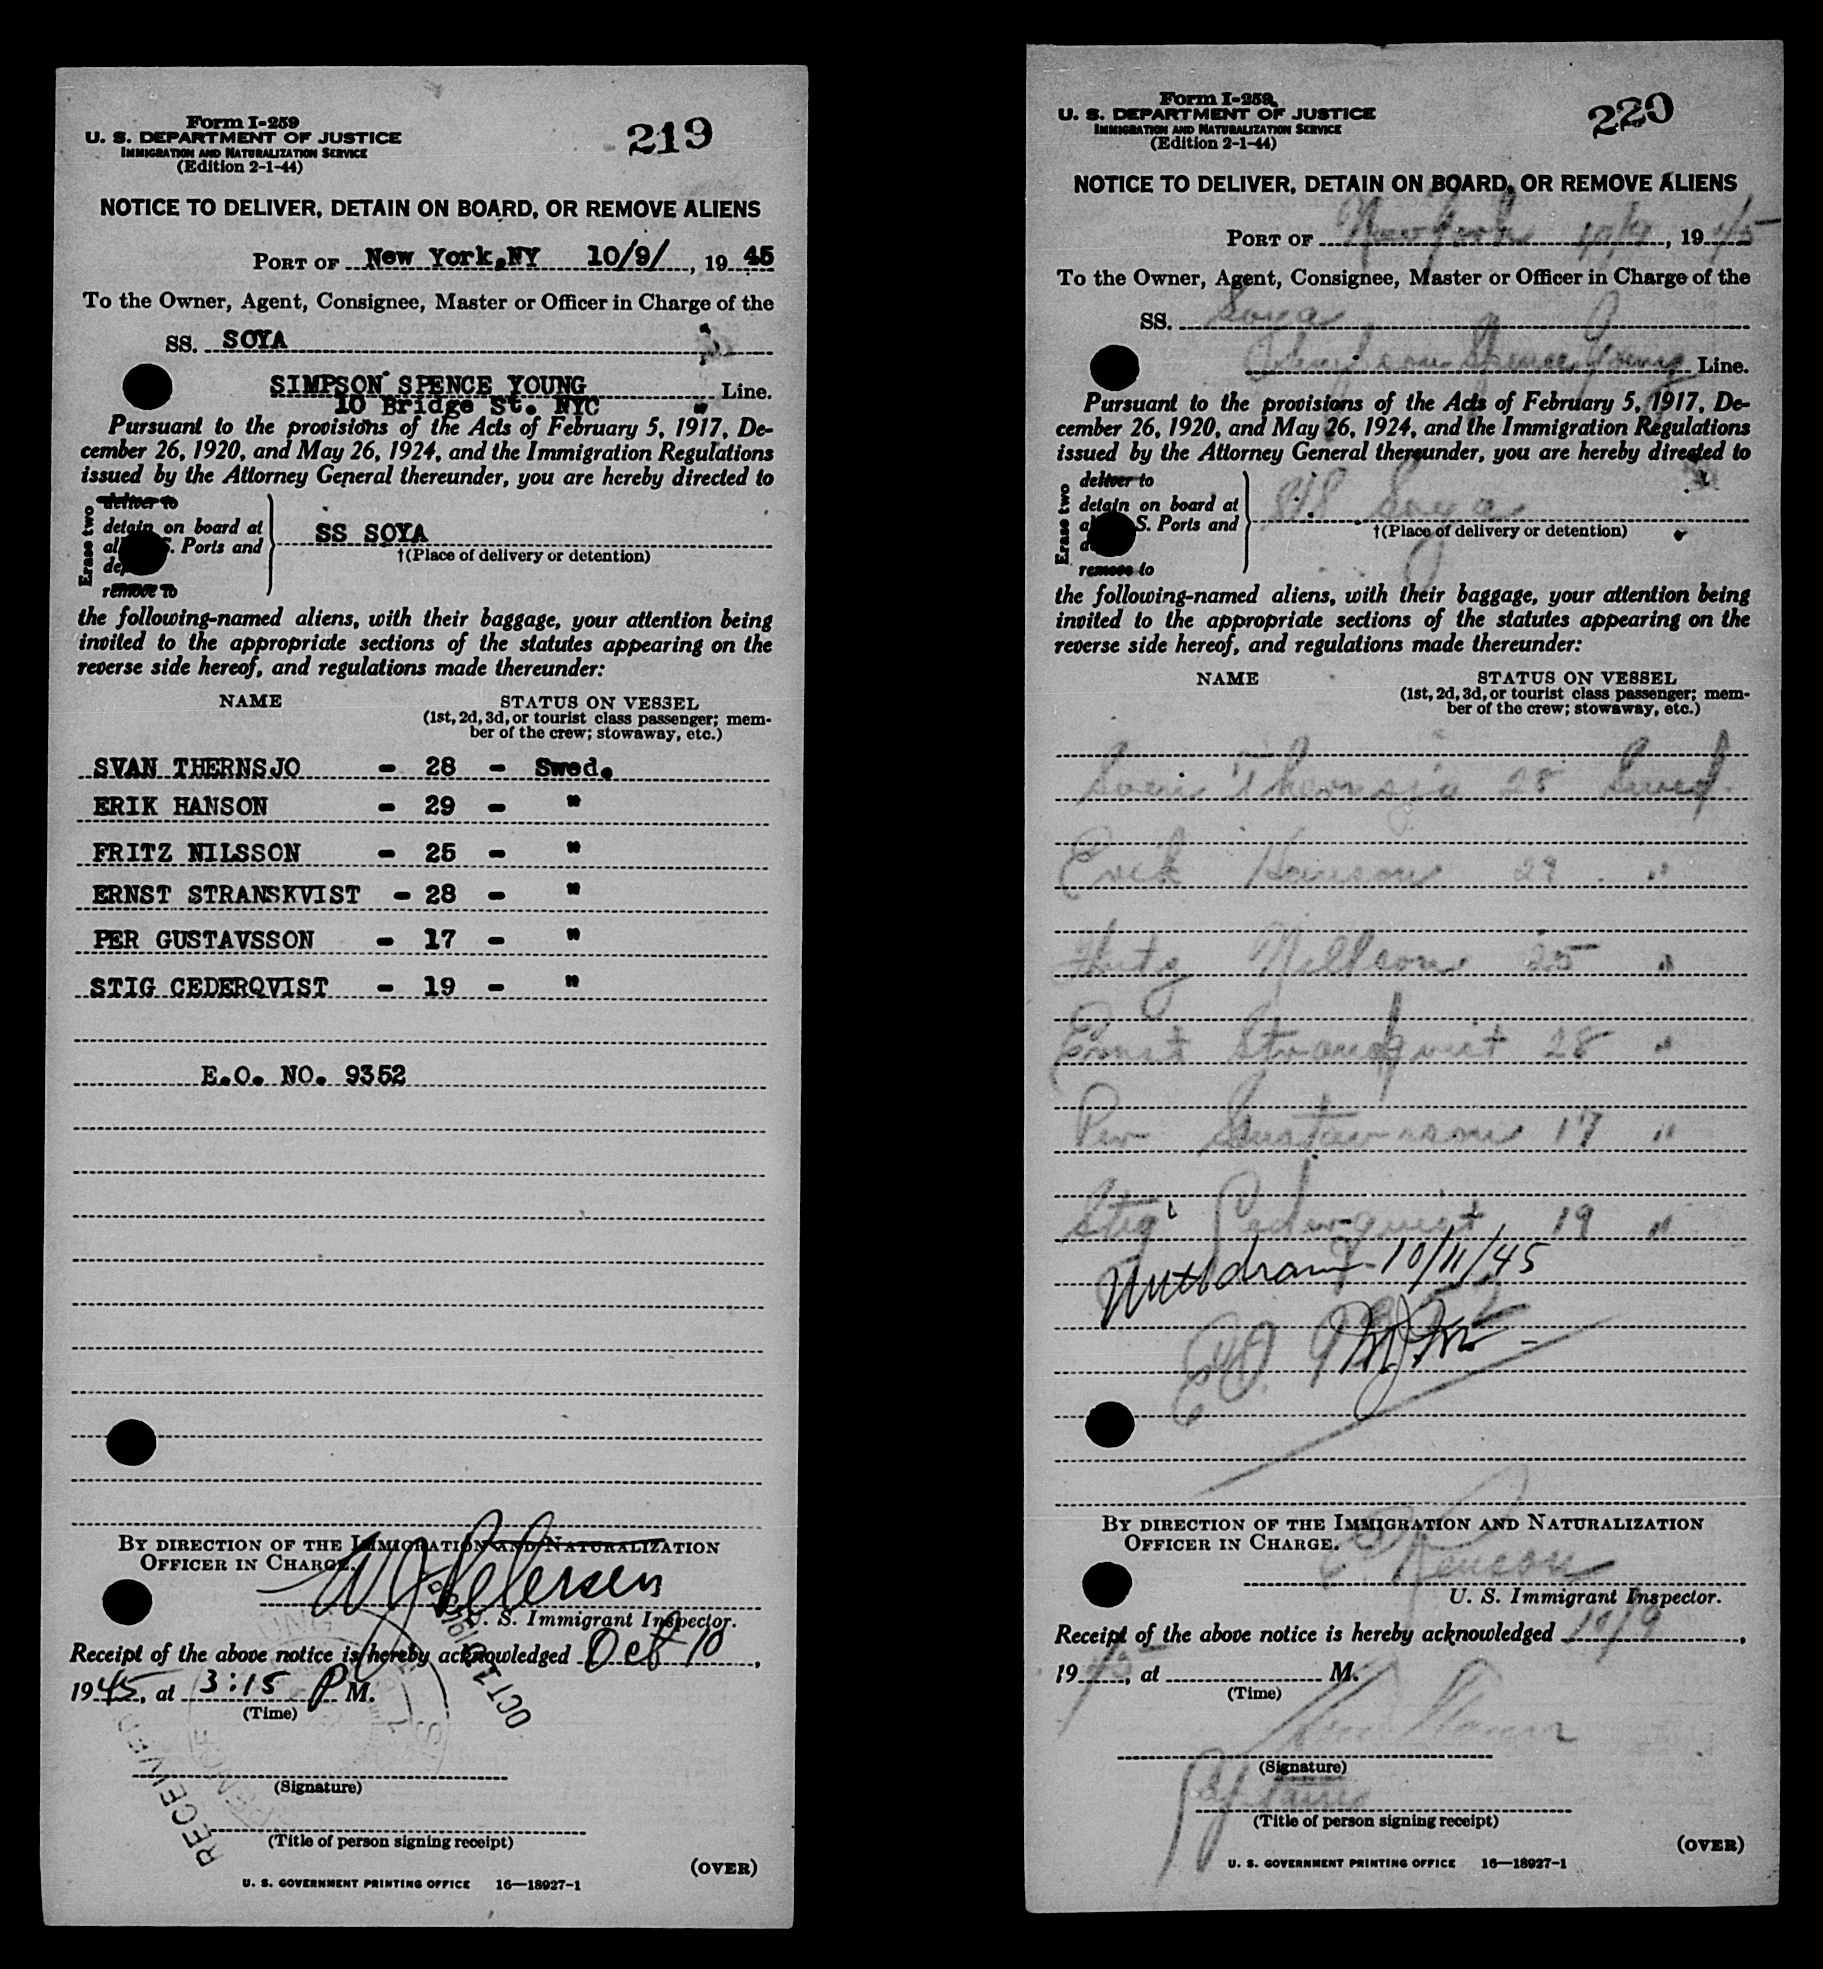 Form I-259
U. S. DEPARTMENT OF JUSTICE
IMMIGRATION AND NATURALIZATION SERVICE
(Edition 2-1-44)
219
NOTICE TO DELIVER, DETAIN ON BOARD, OR REMOVE ALIENS
PORT OF New York,NY 10/9/, 19 45
To the Owner, Agent, Consignee, Master or Officer in Charge of the
SS. SOYA
SIMPSON SPENCE YOUNG Line.
10 Bridge St. NYC
Pursuant to the provisions of the Acts of February 5, 1917, De-
cember 26, 1920, and May 26, 1924, and the Immigration Regulations
issued by the Attorney General thereunder, you are hereby directed to
Erase two
deliver to
detain on board at
al S. Ports and
de
remove to
SS SOYA
†(Place of delivery or detention)
the following-named aliens, with their baggage, your attention being
invited to the appropriate sections of the statutes appearing on the
reverse side hereof, and regulations made thereunder:
NAME STATUS ON VESSEL
(1st, 2d, 3d, or tourist class passenger; mem-
ber of the crew; stowaway, etc.)
SVAN THERNSJO - 28 - Swed.
ERIK HANSON - 29 - "
FRITZ NILSSON - 25 - "
ERNST STRANSKVIST - 28 - "
PER GUSTAVSSON - 17 - "
STIG CEDERQVIST - 19 - "
E.O. NO. 9352
BY DIRECTION OF THE IMMIGRATION AND NATURALIZATION
OFFICER IN CHARGE.
Petersen
U. S. Immigrant Inspector.
Receipt of the above notice is hereby acknowledged Oct 10,
1945, at 3:15 P M.
(Time)
OCT 1
RECEIVED
(Signature)
(Title of person signing receipt)
(OVER)
U. S. GOVERNMENT PRINTING OFFICE 16—18927-1
Form I-259
U. S. DEPARTMENT OF JUSTICE
IMMIGRATION AND NATURALIZATION SERVICE
(Edition 2-1-44)
220
NOTICE TO DELIVER, DETAIN ON BOARD, OR REMOVE ALIENS
PORT OF New York 10/9, 19 45
To the Owner, Agent, Consignee, Master or Officer in Charge of the
SS. Soya
Simpson Spence Young Line.
Pursuant to the provisions of the Acts of February 5, 1917, De-
cember 26, 1920, and May 26, 1924, and the Immigration Regulations
issued by the Attorney General thereunder, you are hereby directed to
Erase two
deliver to
detain on board at
a S. Ports and
d
remove to
SS Soya
†(Place of delivery or detention)
the following-named aliens, with their baggage, your attention being
invited to the appropriate sections of the statutes appearing on the
reverse side hereof, and regulations made thereunder:
NAME STATUS ON VESSEL
(1st, 2d, 3d, or tourist class passenger; mem-
ber of the crew; stowaway, etc.)
Sven Thernsjo 28 Swed.
Erik Hanson 29 "
Fritz Nillson 25 "
Ernst Strandqvist 28 "
Per Gustavsson 17 "
Stig Cederquist 19 "
Withdrawn 10/11/45
EO 9352
BY DIRECTION OF THE IMMIGRATION AND NATURALIZATION
OFFICER IN CHARGE.
U. S. Immigrant Inspector.
Receipt of the above notice is hereby acknowledged 10/9,
1945, at M.
(Time)
(Signature)
(Title of person signing receipt)
(OVER)
U. S. GOVERNMENT PRINTING OFFICE 16—18927-1